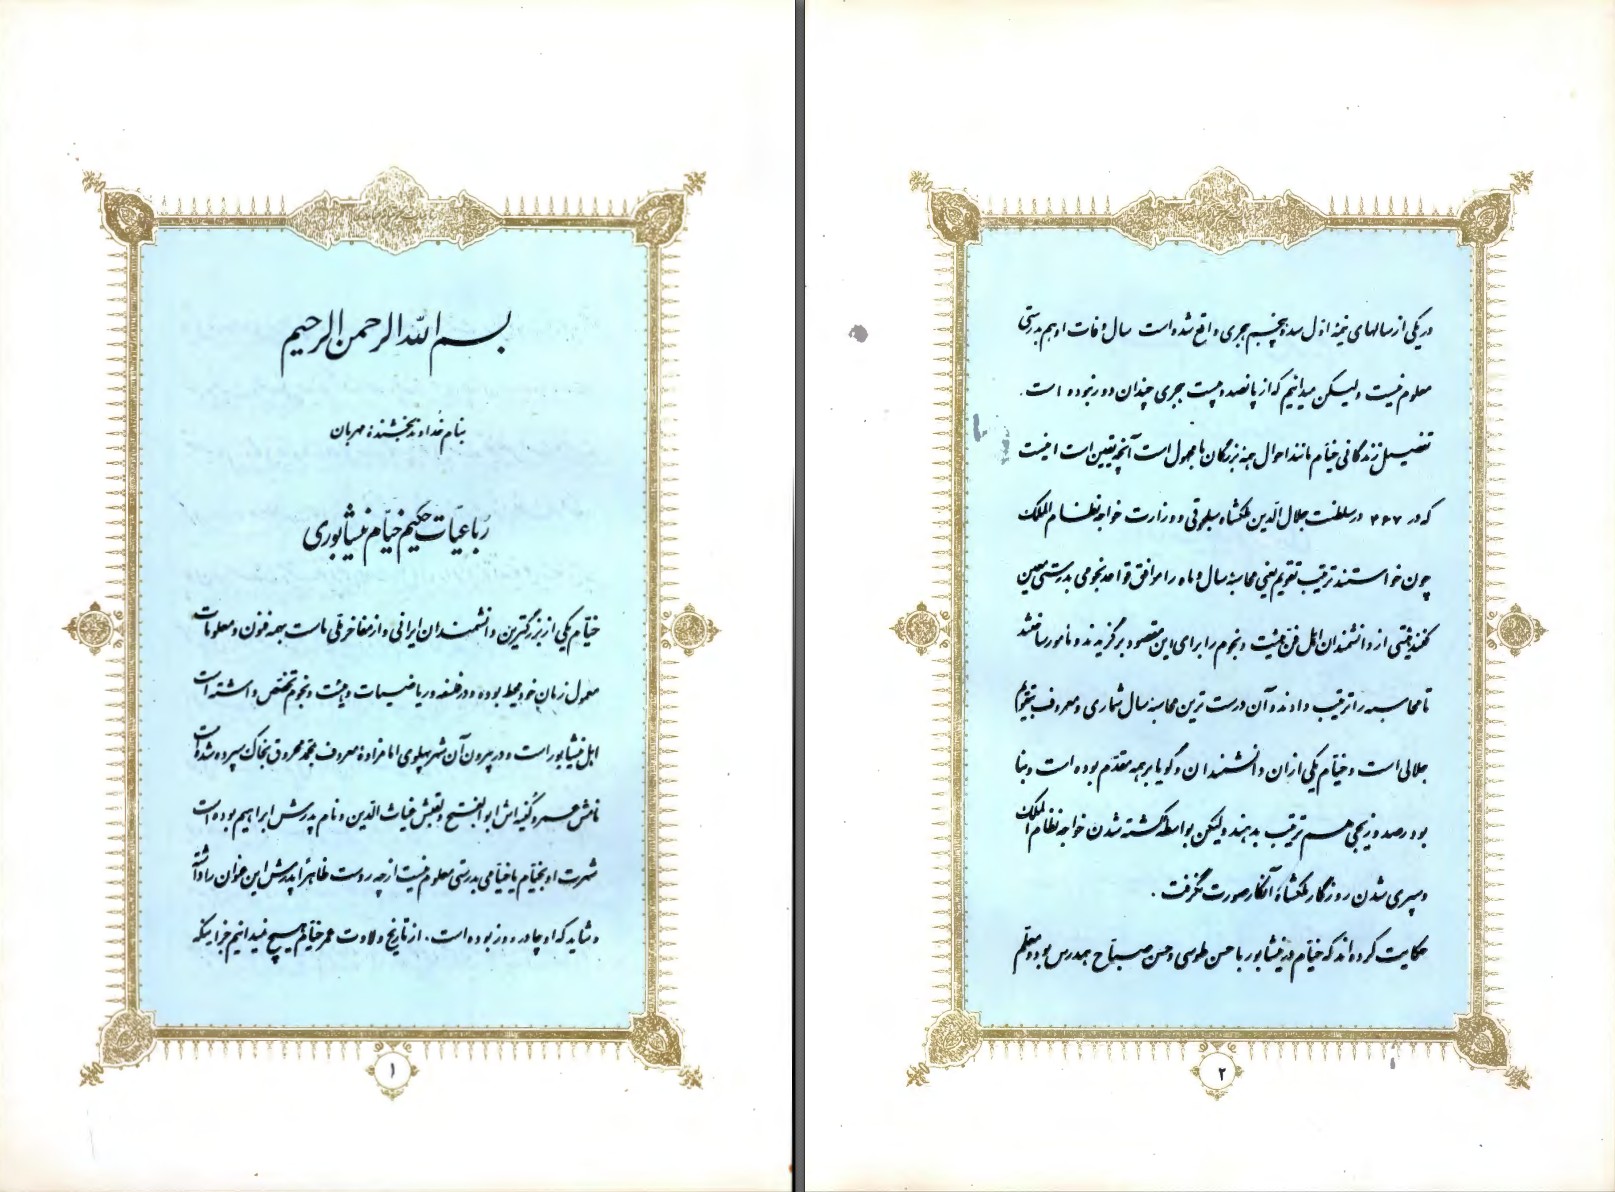 بسم الله الرحمن الرحیم
بنام خداوند بخشنده مهربان
رباعیّات حکیم خیّام نیشابوری
خیّام یکی از بزرگترین دانشمندان ایرانی و از مفاخر ملّی ماست بهمه فنون و معلومات
معمول زمان خود محیط بوده و در فلسفه و ریاضیات و هیئت و نجوم تخصّص داشته است
اهل نیشابور است و در بیرون آن شهر پهلوی امامزادهٔ معروف بمحمّد محروق بخاک سپرده شده است
نامش عمر و کنیه‌اش ابوالفتح و لقبش غیاث الدّین و نام پدرش ابراهیم بوده است
شهرت او بخیّام یا خیّامی بدرستی معلوم نیست از چه روست ظاهراً پدرش این عنوان را داشته
و شاید که او چادردوز بوده است. از تاریخ ولادت عمر خیّام هیچ نمیدانیم جز اینکه
۱
در یکی از سالهای نیمهٔ اوّل سدهٔ پنجم هجری واقع شده است سال وفات او هم بدرستی
معلوم نیست ولیکن میدانیم که از پانصد و بیست هجری چندان دور نبوده است.
تفصیل زندگانی خیّام مانند احوال همه بزرگان ما مجهول است آنچه بتعیین است اینست
که در ۴۶۷ در سلطنت جلال الدّین ملکشاه سلجوقی و وزارت خواجه نظام الملک
چون خواستند ترتیب تقویم یعنی محاسبهٔ سال و ماه را موافق قواعد نجومی بدرستی معین
کنند هیئتی از دانشمندان اهل فن هیئت و نجوم را برای این مقصود برگزیدند و مأمور ساختند
تا محاسبه را ترتیب دادند و آن درست ترین محاسبهٔ سال شماری و معروف بتقویم
جلالی است و خیّام یکی از آن دانشمندان و گویا بر همه مقدّم بوده است و بنا
بود رصد و زیجی هم ترتیب بدهند ولیکن بواسطهٔ کشته شدن خواجه نظام الملک
و سپری شدن روزگار ملکشاه آنکار صورت نگرفت.
حکایت کرده‌اند که خیّام در نیشابور با حسن طوسی و حسن صبّاح همدرس بود و معلّم
۲